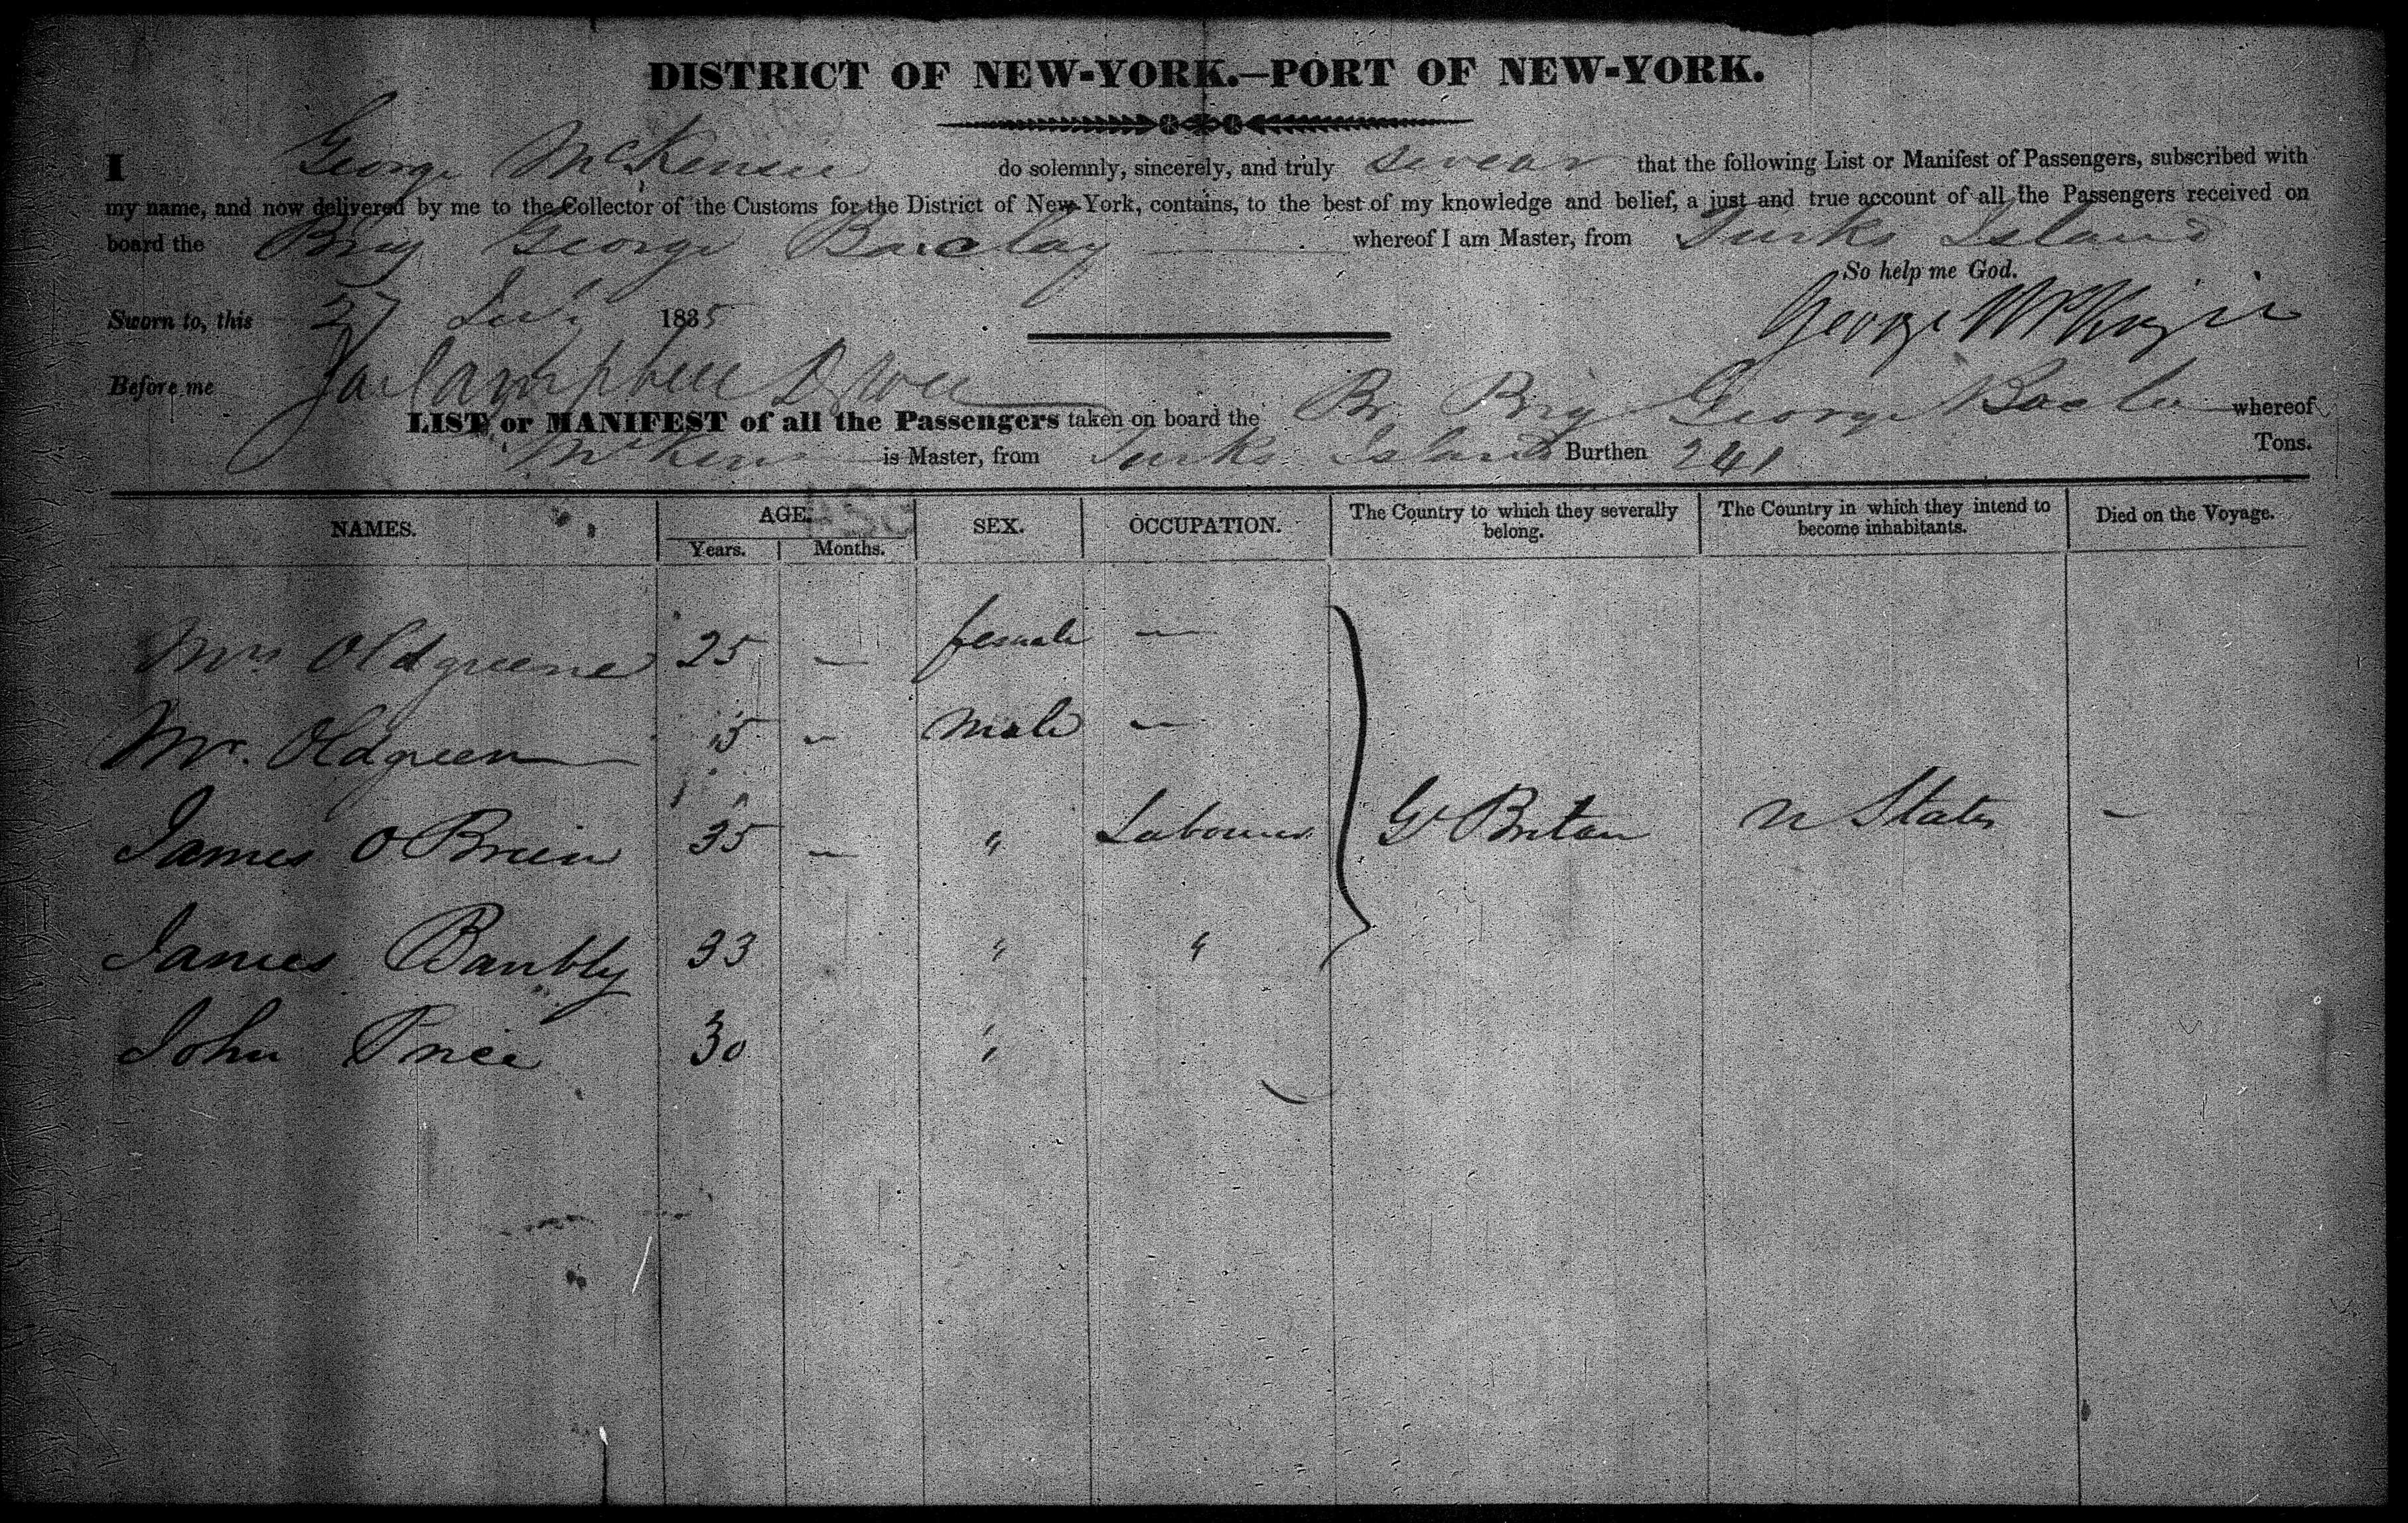 DISTRICT OF NEW-YORK.—PORT OF NEW-YORK.
I George McKensie do solemnly, sincerely, and truly swear that the following List or Manifest of Passengers, subscribed with
my name, and now delivered by me to the Collector of the Customs for the District of New-York, contains, to the best of my knowledge and belief, a just and true account of all the Passengers received on
board the Brig George Barclay whereof I am Master, from Turks Island
So help me God.
Sworn to, this 27 1835
George
Before me Campbell
LIST or MANIFEST of all the Passengers taken on board the Br. Brig George whereof
is Master, from Turks Island Burthen 241 Tons.
NAMES. AGE. SEX. OCCUPATION. The Country to which they severally belong. The Country in which they intend to become inhabitants. Died on the Voyage.
Years. Months.
Mrs Oldgreene 25 — female —
Mr. Oldgreen 15 — male —
James O Brien 35 — " Labourer Gt Britan U States —
James Banbly 33 " "
John Price 30 "